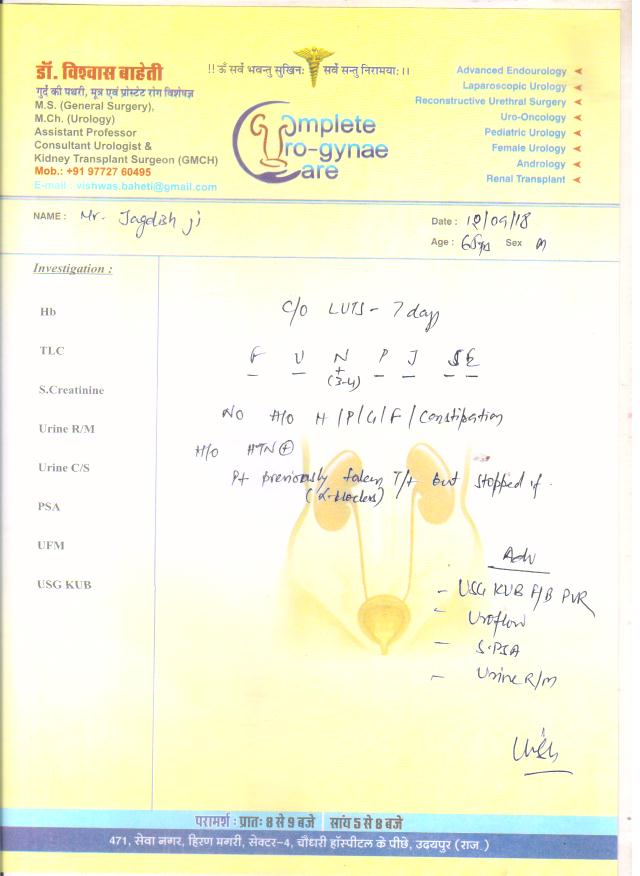 !! ॐ सर्वे भवन्तु सुखिनः सर्वे सन्तु निरामयाः ।।
डॉ. विश्वास बाहेती
गुर्दे की पथरी, मूत्र एवं प्रोस्टेट रोग विशेषज्ञ
M.S. (General Surgery),
M.Ch. (Urology)
Assistant Professor
Consultant Urologist &
Kidney Transplant Surgeon (GMCH)
Mob.: +91 97727 60495
E-mail : vishwas.baheti@gmail.com
Complete
Uro-gynae
Care
Advanced Endourology
Laparoscopic Urology
Reconstructive Urethral Surgery
Uro-Oncology
Pediatric Urology
Female Urology
Andrology
Renal Transplant
NAME : Mr. Jagdish ji
Date : 12/09/18
Age : 65yrs Sex M
Investigation :
Hb
TLC
S.Creatinine
Urine R/M
Urine C/S
PSA
UFM
USG KUB
C/O LUTS - 7 day
F U N P I SE
+
(3-4)
NO H/O H/P/G/F/Constipation
H/O HTN +
Pt previously taken T/t but stopped it.
(α-blockers)
Adv
- USG KUB F/B PVR
- Uroflow
- S.PSA
- Urine R/M
परामर्श : प्रातः 8 से 9 बजे | सांय 5 से 8 बजे
471, सेवा नगर, हिरण मगरी, सेक्टर-4, चौधरी हॉस्पीटल के पीछे, उदयपुर (राज.)